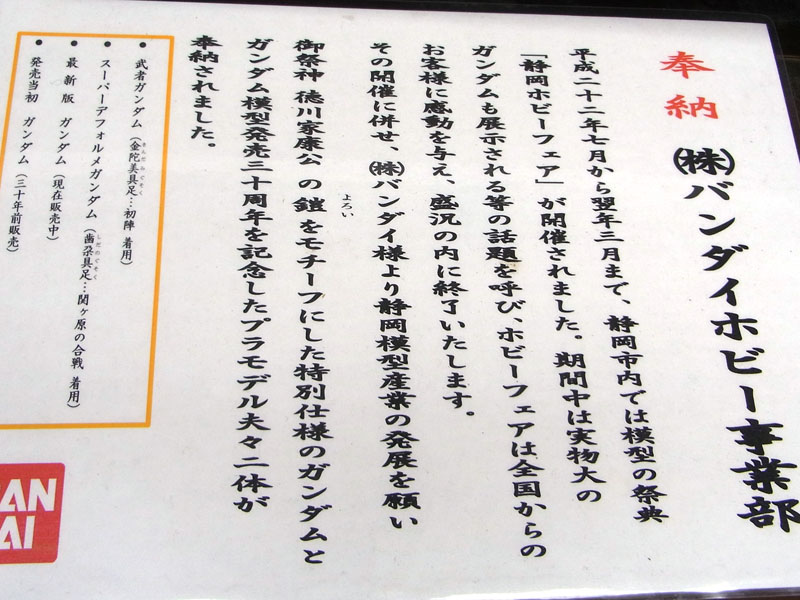 奉納
㈱バンダイホビー事業部
平成二十二年七月から翌年三月まで、静岡市内では模型の祭典
「静岡ホビーフェア」が開催されました。期間中は実物大の
ガンダムも展示される等の話題を呼び、ホビーフェアは全国からの
お客様に感動を与え、盛況の内に終了いたします。
その開催に併せ、㈱バンダイ様より静岡模型産業の発展を願い
御祭神 徳川家康公 の 鎧 をモチーフにした特別仕様のガンダムと
よろい
ガンダム模型発売三十周年を記念したプラモデル夫々二体が
奉納されました。
• 武者ガンダム（金陀美具足…初陣 着用）
きんだみぐそく
• スーパーデフォルメガンダム（歯朶具足…関ヶ原の合戦 着用）
しだのぐそく
• 最新版 ガンダム（現在販売中）
• 発売当初 ガンダム（三十年前販売）
AN
AI